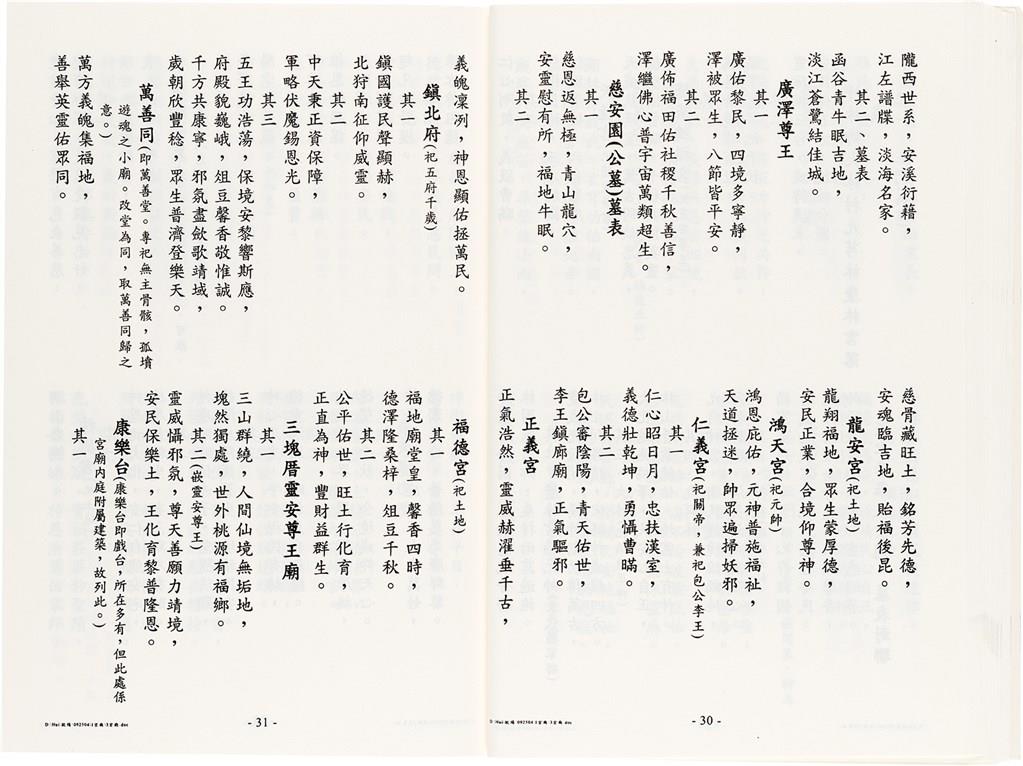 隴西世系，安溪衍藉，
江左譜牒，淡海名家。
其二、墓表
函谷青牛眠吉地，
淡江蒼鷺結佳城。
廣澤尊王
其一
廣佑黎民，四境多寧靜，
澤被眾生，八節皆平安。
其二
廣佈福田佑社稷千秋善信，
澤繼佛心普宇宙萬類超生。
慈安園(公墓)墓表
其一
慈恩返無極，青山龍穴，
安靈慰有所，福地牛眠。
其二
慈骨藏旺土，銘芳先德，
安魂臨吉地，貽福後昆。
龍安宮(祀土地)
龍翔福地，眾生蒙厚德，
安民正業，合境仰尊神。
鴻天宮(祀元帥)
鴻恩庇佑，元神普施福祉，
天道拯迷，帥眾遍掃妖邪。
仁義宮(祀關帝，兼祀包公李王)
其一
仁心昭日月，忠扶漢室，
義德壯乾坤，勇懾曹瞞。
其二
包公審陰陽，青天佑世，
李王鎮廊廟，正氣驅邪。
正義宮
正氣浩然，靈威赫濯垂千古，
- 30 -
義魄凜冽，神恩顯佑拯萬民。
鎮北府(祀五府千歲)
其一
鎮國護民聲顯赫，
北狩南征仰威靈。
其二
中天秉正資保障，
軍略伏魔錫恩光。
其三
五王功浩蕩，保境安黎響斯應，
府殿貌巍峨，俎豆馨香敬惟誠。
千方共康寧，邪氛盡斂歌靖域，
歲朝欣豐稔，眾生普濟登樂天。
萬善同(即萬善堂。專祀無主骨骸，孤墳
遊魂之小廟。改堂為同，取萬善同歸之
意。)
萬方義魄集福地，
善舉英靈佑眾同。
福德宮(祀土地)
其一
福地廟堂皇，馨香四時，
德澤隆桑梓，俎豆千秋。
其二
公平佑世，旺土行化育，
正直為神，豐財益群生。
三塊厝靈安尊王廟
其一
三山群繞，人間仙境無垢地，
塊然獨處，世外桃源有福鄉。
其二(嵌靈安尊王)
靈威懾邪氛，尊天善願力靖境，
安民保樂土，王化育黎普隆恩。
康樂台(康樂台即戲台，所在多有，但此處係
宮廟內庭附屬建築，故列此。)
其一
- 31 -